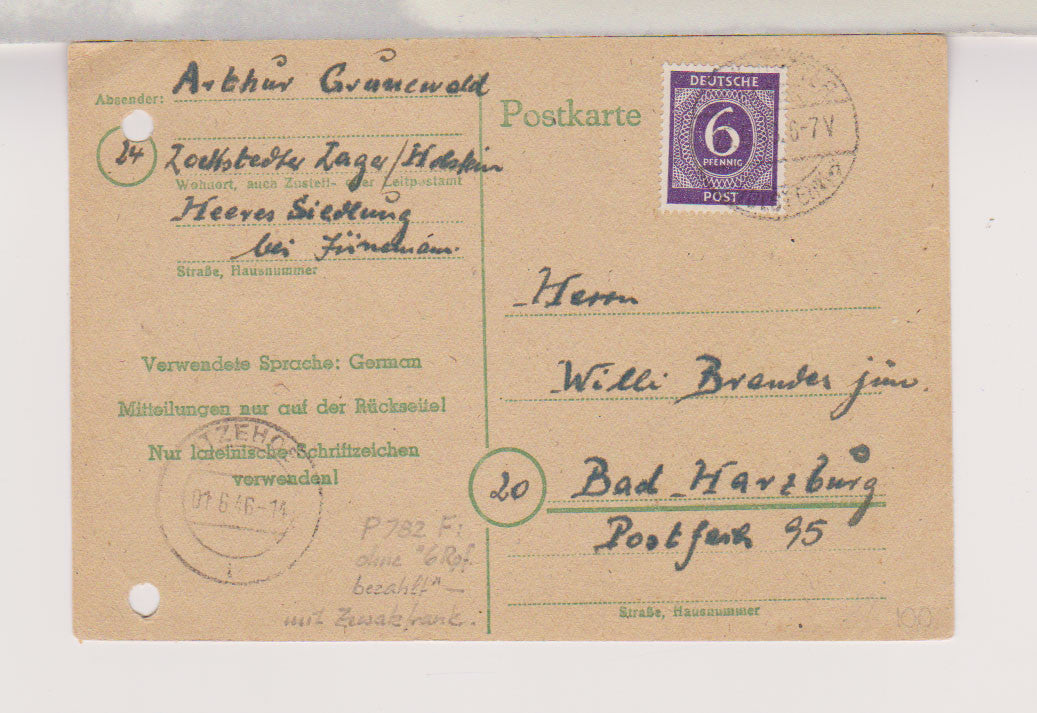 Absender: Arthur Grunewald
24
Lockstedter Lager/Holstein
Wohnort, auch Zustell- oder Leitpostamt
Heeres Siedlung
bei Jürnemann.
Straße, Hausnummer
Verwendete Sprache: German
Mitteilungen nur auf der Rückseite!
Nur lateinische Schriftzeichen
verwenden!
ITZEHOE
01.6.46-14
P 782 F:
ohne "6 Rpf.
bezahlt" –
mit Zusatzfrank.
Postkarte
DEUTSCHE
6
PFENNIG
POST
6-7V
Herrn
Willi Brandes jun.
20
Bad-Harzburg
Postfach 95
Straße, Hausnummer
100